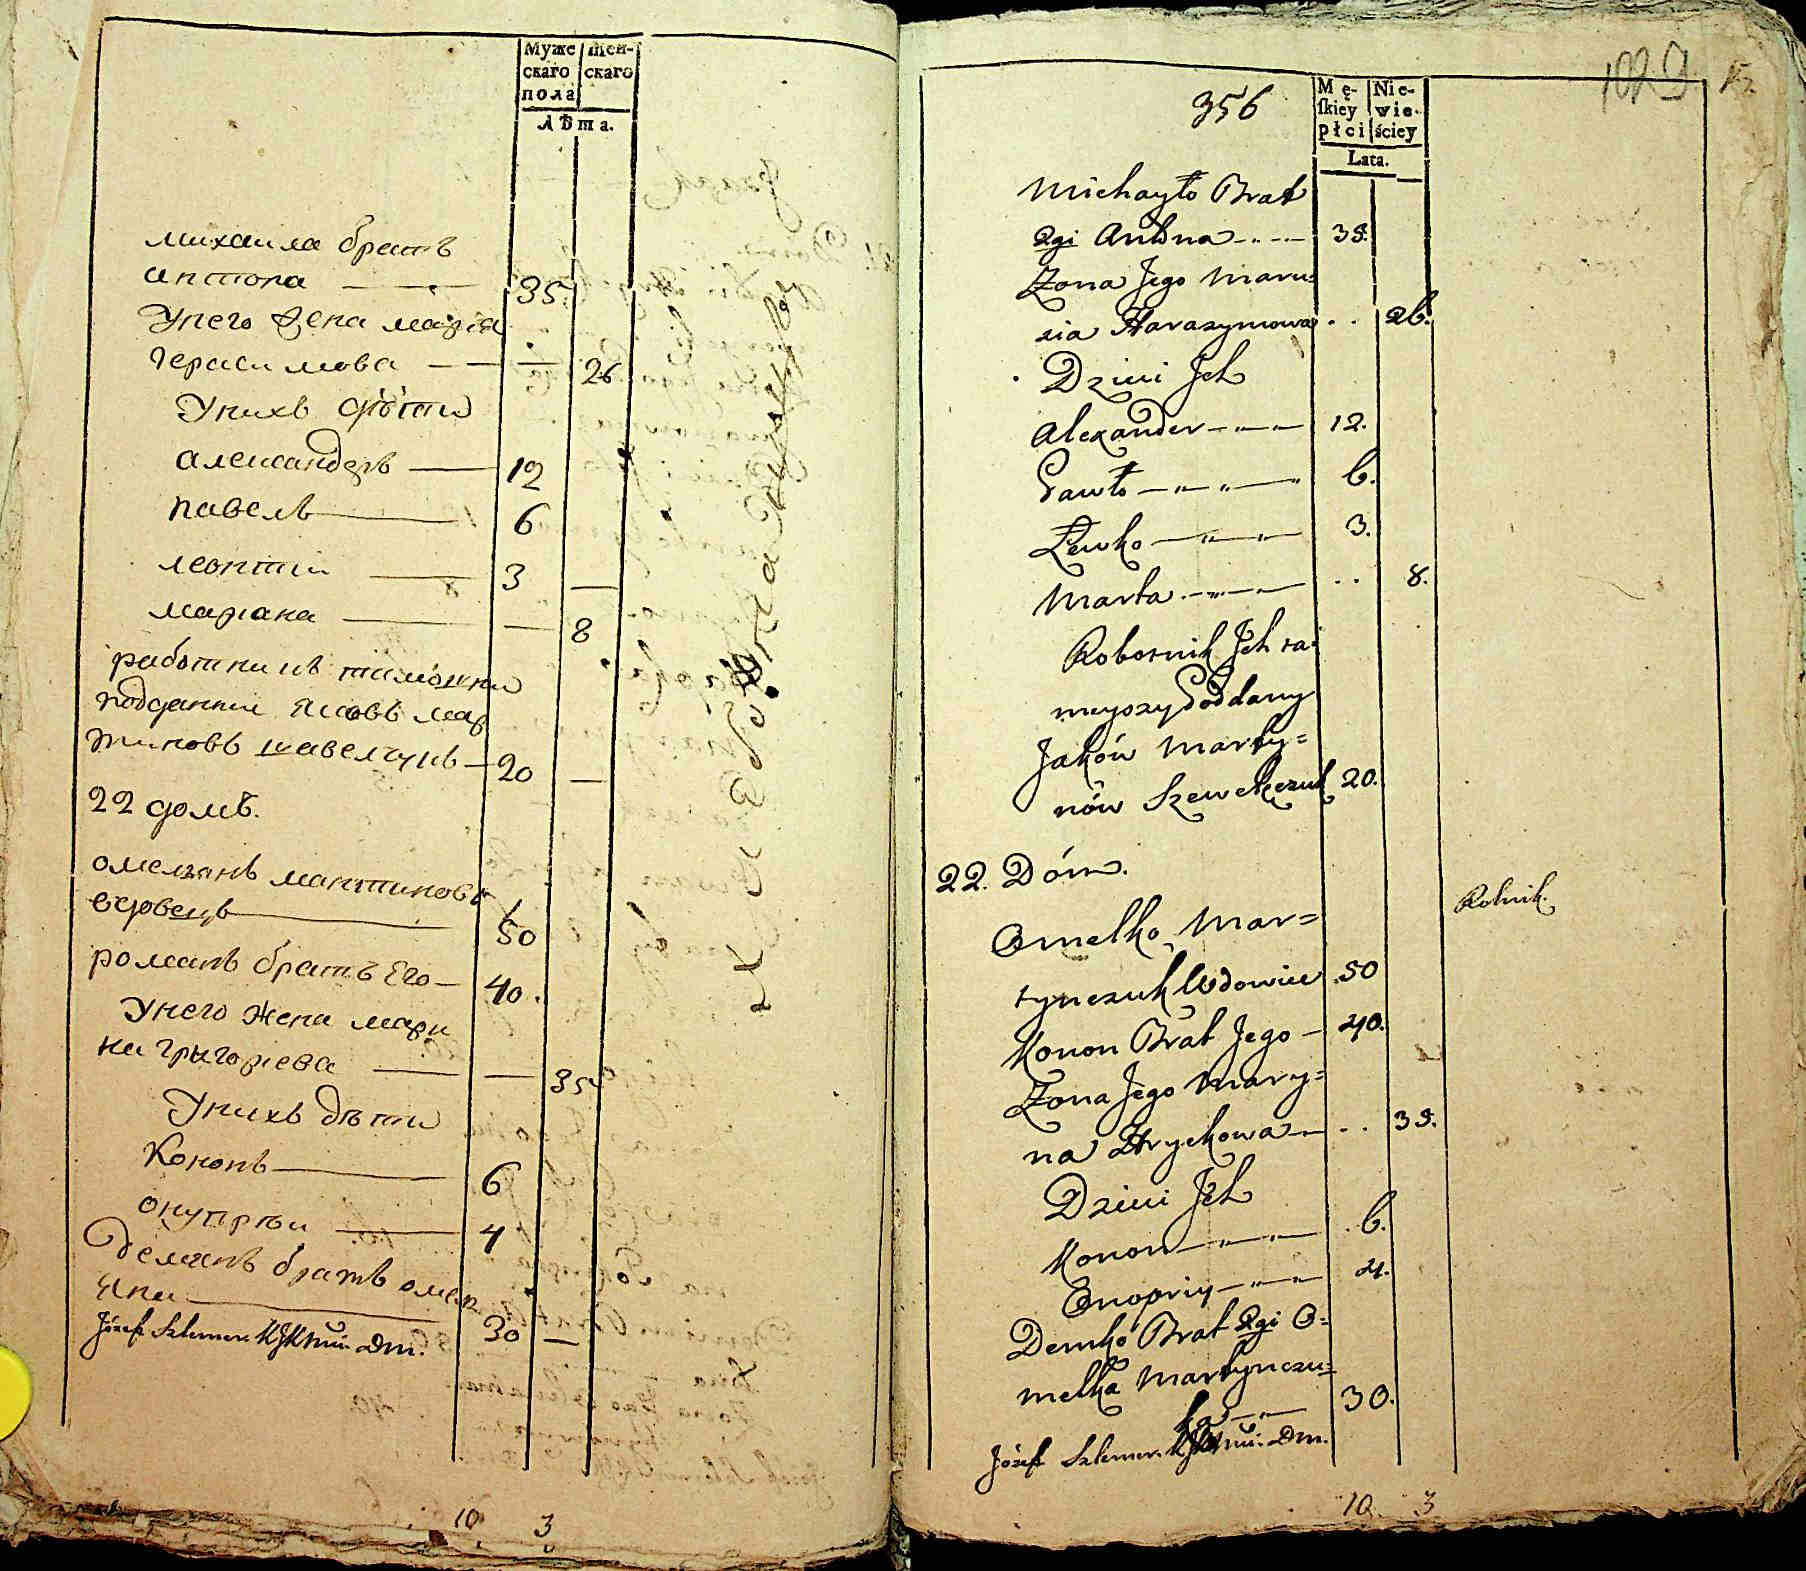 Муже
скаго
пола
Жен-
скаго
Лѣта.
михаила братъ
антона 35
Унего жена мариа
герасимова 26
Унихъ дѣти
александеръ 12
павелъ 6
леонтии 3
мариана 8
работникъ
подданнии Яковъ мар
тиновъ шавелчукъ 20
22 домъ.
омелянъ мантиновъ
вдовецъ 50
романъ братъ Его 40.
Унего жена мари
на григориева 35
Унихъ дѣти
Кононъ 6
онуприи 4
демянъ братъ омел
Яна 30
Józef Dm.
10 3
1029
356
Mę-
ſkiey
płci
Nie-
wie-
ściey
Lata.
Michayło Brat
2gi Antona 35.
Zona Jego Maru=
sia Harasymowa . . 26.
Dzieci Jch
Alexander 12.
Pawło 6.
Lewko 3.
Marta . . 8.
Robotnik Jch ta=
meyszy Poddany
Jaków Marty=
nów Szewelczuk 20.
22. Dóm.
Omelko Mar= Rolnik.
tynczuk Wdowiec 50
Konon Brat Jego 40.
Zona Jego Mary=
na Hryckowa . . 35.
Dzieci Jch
Konon 6.
Onopriy 4.
Demko Brat 2gi O=
melka Martynczu=
ka 30.
Józef Dm.
10. 3